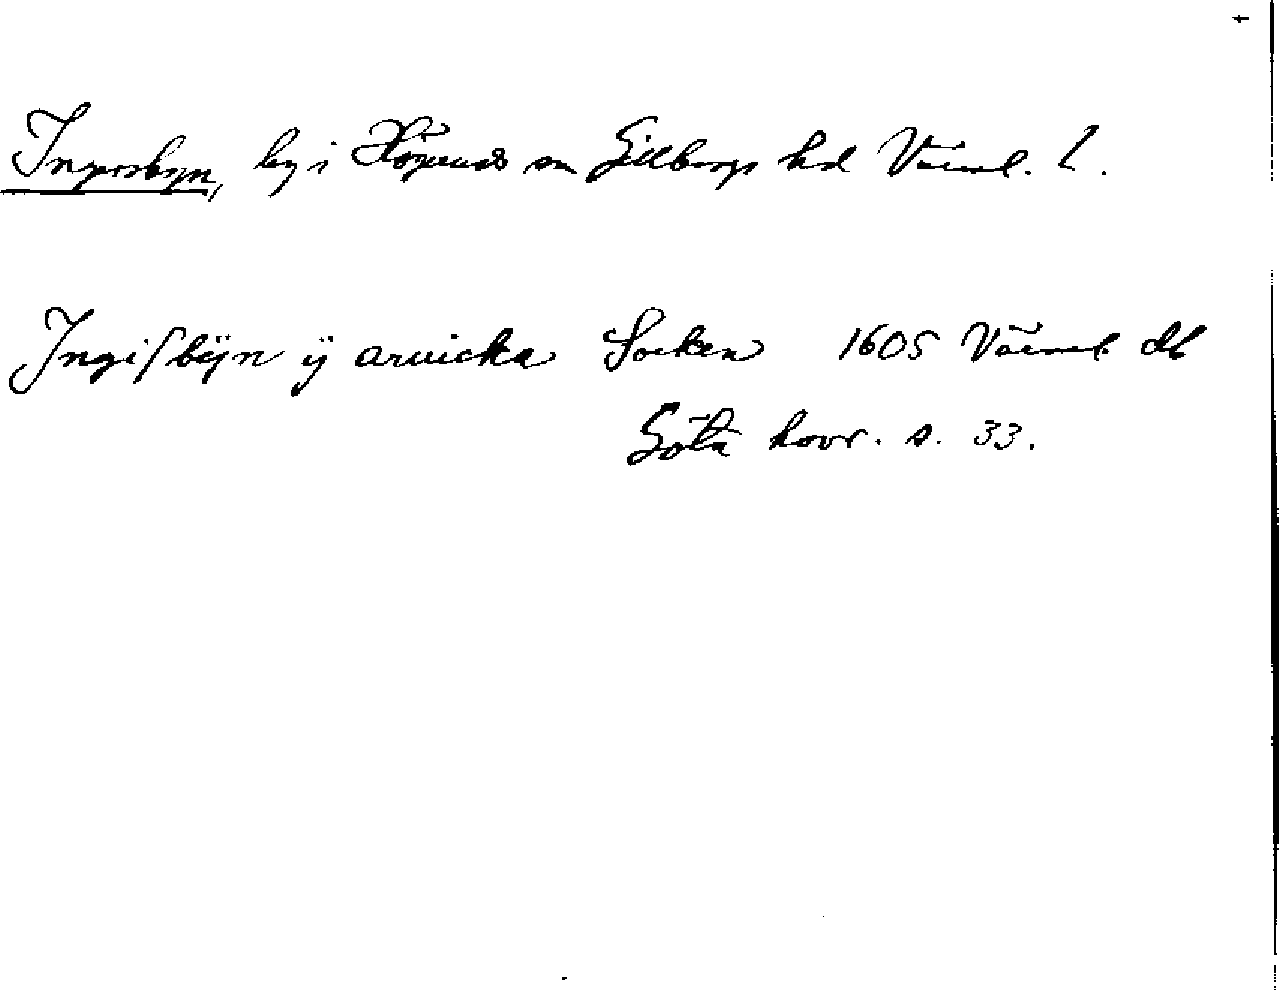 Ingersbyn, by i Högerud sn Gillbergs hd Värml. l.
Jngiſbÿn ÿ aruicka Socken 1605 Värml. db
Göta hovr. s. 33.